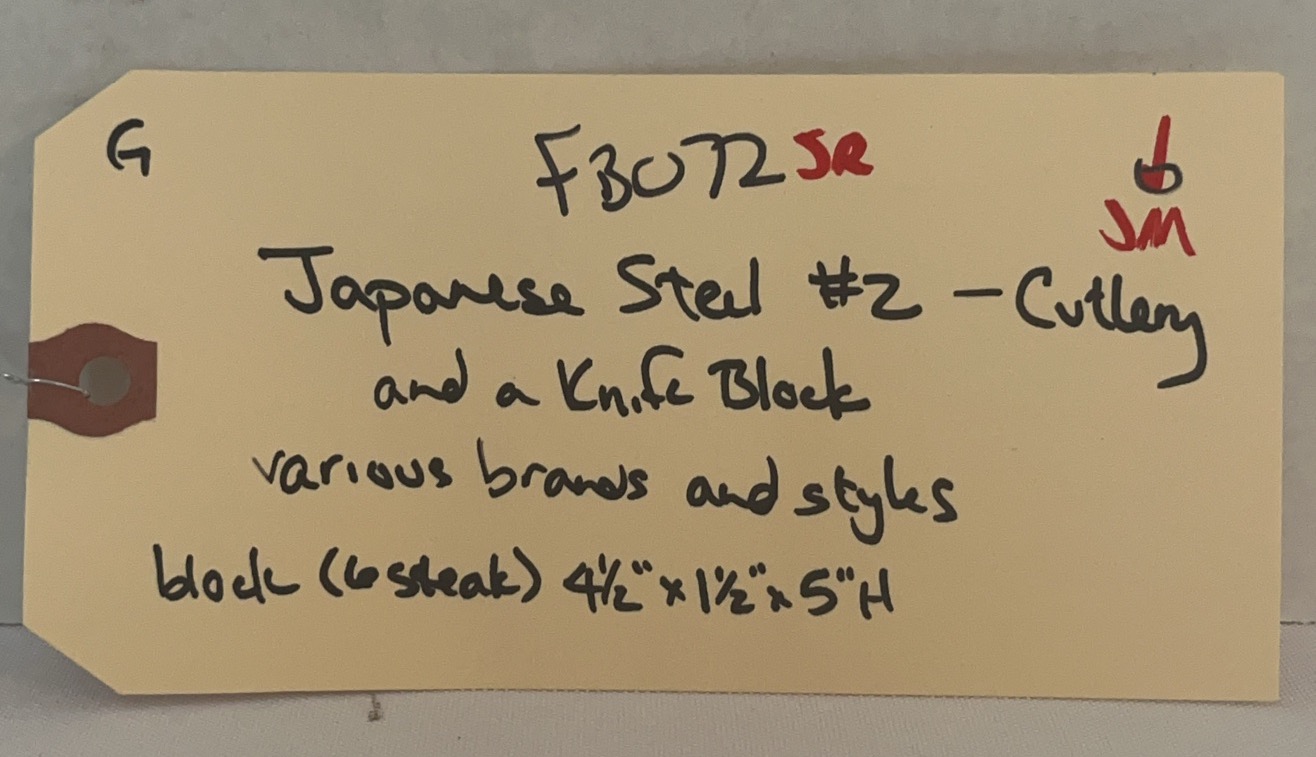 G FB072 SR
JM
Japanese Steel #2 - Cutlery
and a Knife Block
various brands and styles
block (6 steak) 4½" x 1½" x 5"H